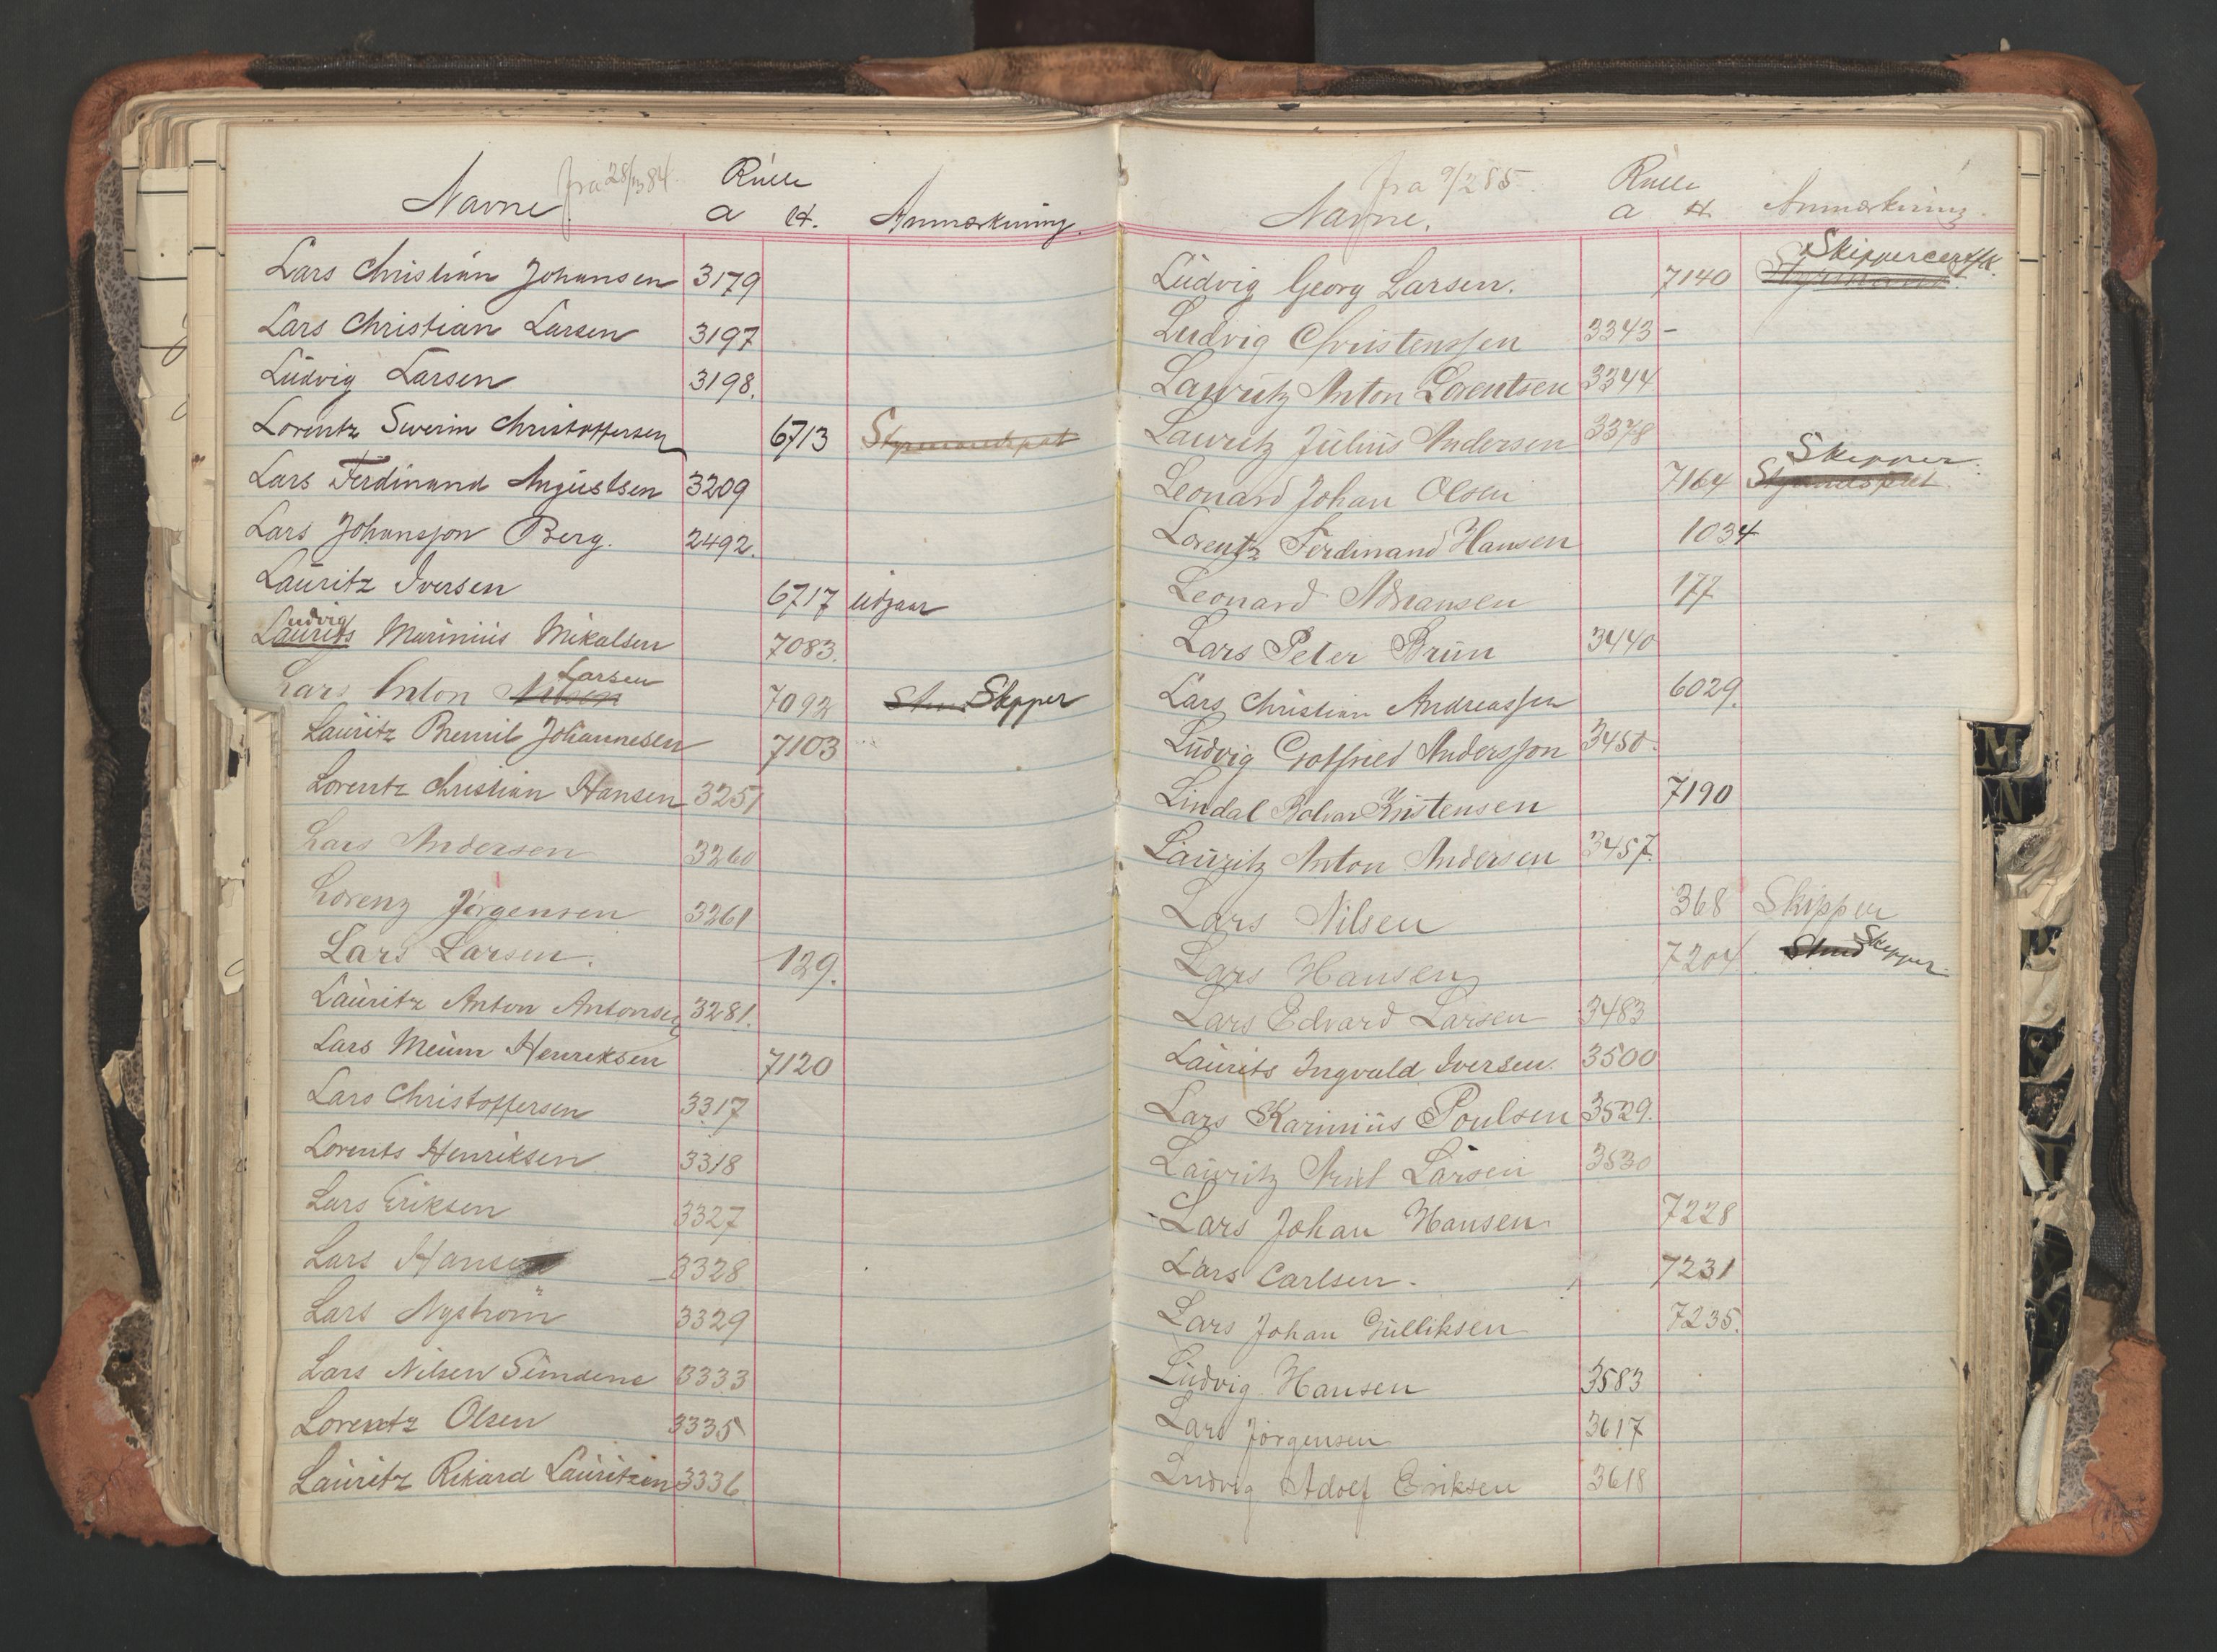 fra 28/3 84. Rulle
Navne. a H. Anmærkning.
Lars Christian Johansen 3179
Lars Christian Larsen 3197
Ludvig Larsen 3198.
Lorentz Christoffersen 6713 Styrmandspat
Lars Ferdinand Augustsen 3209
Lars Johansson Berg. 2492.
Lauritz Iversen 6717 udgaar
udvig
Laurits Marinius Mikalsen 7083.
Larsen
Lars Anton Nilsen 7092 Skipper
Lauritz Johannesen 7103
Lorentz Christian Hansen 3251
Lars Andersen 3260
Lorenz Jörgensen 3261
Lars Larsen. 129.
Lauritz Anton Antonsen 3281.
Lars Henriksen 7120
Lars Christoffersen 3317
Lorents Henriksen 3318
Lars Eriksen 3327
Lars Hansen 3328
Lars Nyström 3329
Lars Nilsen Sundene 3333
Lorentz Olsen 3335
Lauritz Rikard Lauritzen 3336
fra 9/2 85. Rulle
Navne. a H. Anmærkning.
Skippercertfk.
Ludvig Georg Larsen. 7140
Ludvig Christenssen 3343 -
Lauritz Anton Lorentsen 3344
Lauritz Julius Andersen 3378
Skipper.
Leonard Johan Olsen 7164
Lorentz Ferdinand Hansen 1034
Leonard Adriansen 177
Lars Peter Brun 3440
Lars Christian Andreassen 6029.
Ludvig Gotfried Andersson 3450.
Lindal Kristensen 7190
Lauritz Anton Andersen 3457.
Lars Nilsen 368 Skipper
Lars Hansen 7204 Stmd Skipper
Lars Edvard Larsen 3483
Laurits Ingvald Iversen. 3500
Lars Karinius Poulsen 3529.
Lauritz Larsen 3530
Lars Johan Hansen 7228
Lars Carlsen. 7231
Lars Johan Gulliksen 7235.
Ludvig Hansen 3583
Lars Jörgensen 3617
Ludvig Adolf Eriksen 3618